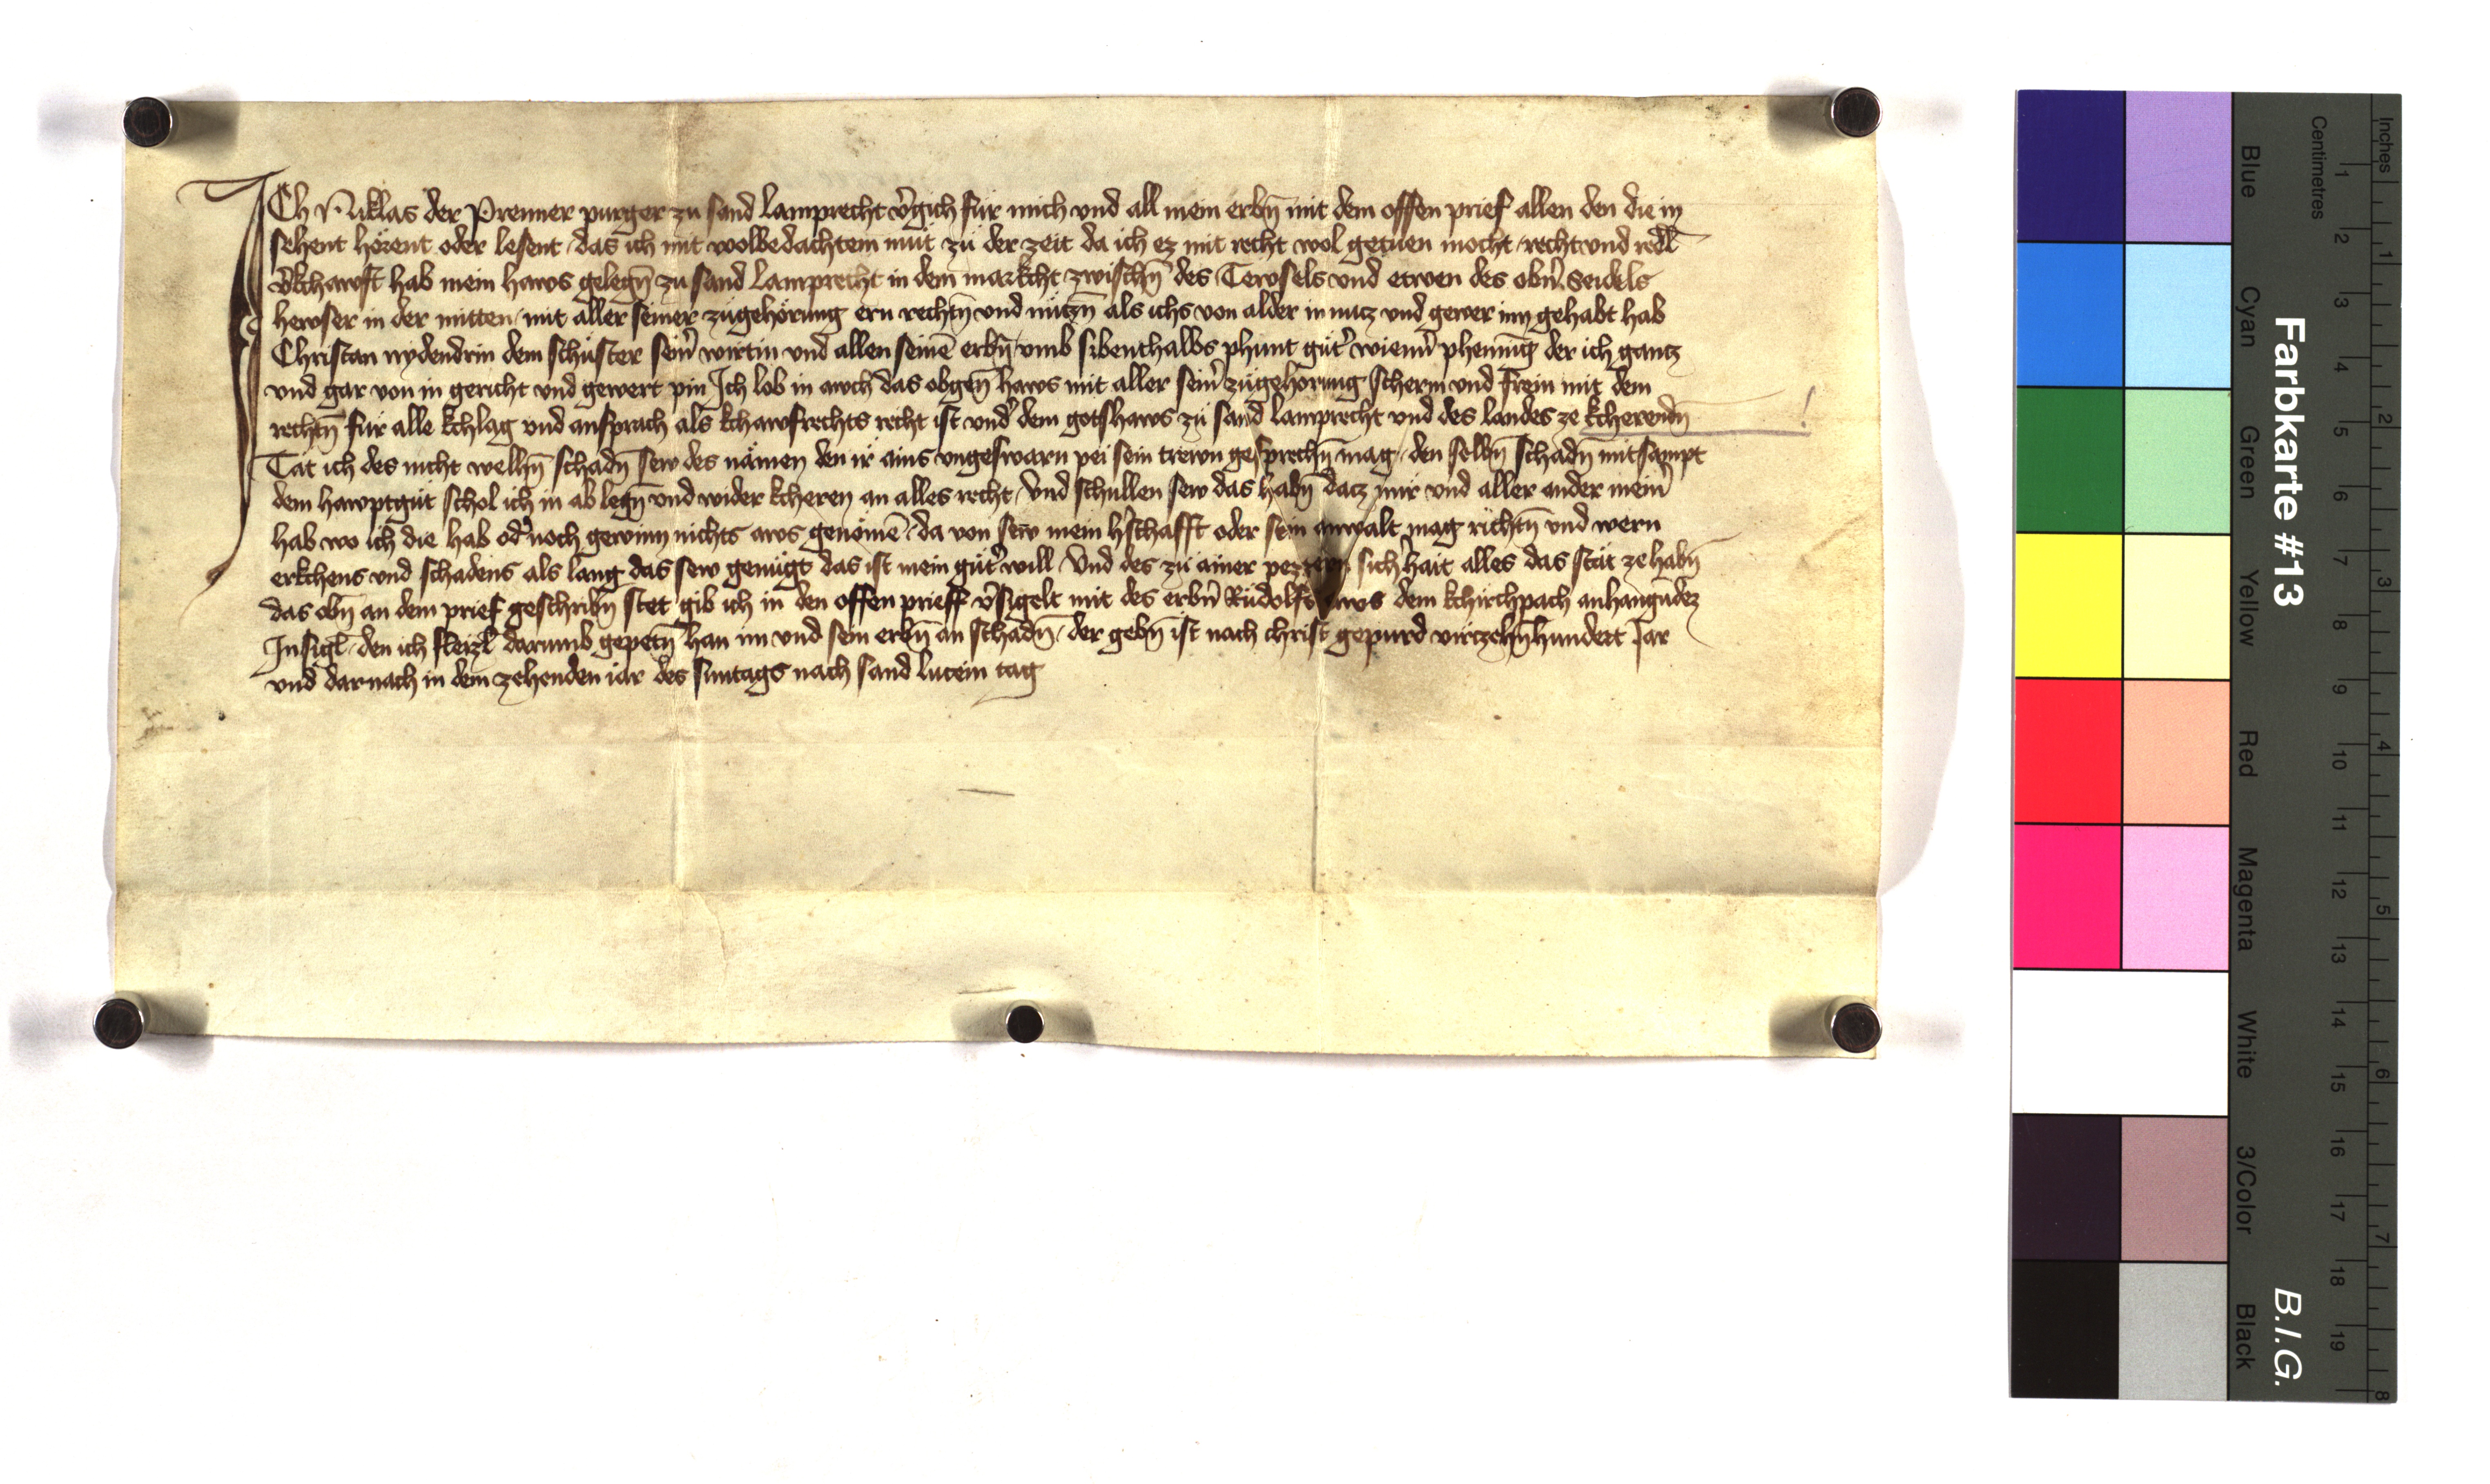 ICh Niklas der Prenner purger zu sand lamprecht v̉gich für mich vnd all mein erbn̄ mit dem offen prief allen den die in
sehent hörent oder lesent das ich mit wolbedachtem müt zü der zeit da ich ez mit recht wol getuen mocht recht vnd redl
v̉kchawft hab mein haws gelegn̄ zu sand Lamprecht in dem markcht zwischn̄ des Tewsels vnd etwen des obn̉ Seidels
hewser in der mitten mit aller seiner zügehörung ern rechtn̄ vnd nützn̄ als ichs von alder in nutz vnd gewer inn gehabt hab
Christan nydendrin dem schüster sein̉ wirtin vnd allen seinē erbn̄ vmb sibenthalbs phunt güt̉ wienn̉ phenning der ich gantz
vnd gar von in gericht vnd gewert pin Ich lob in awch das obgen̄ haws mit aller sein̉ zügehörung scherm vnd frein mit dem
rechtn̄ für alle kchlag vnd ansprach als kchawfrechts recht ist vnd̉ dem gotshaws zü sand lamprecht vnd des landes ze kcherendn̄
Tät ich des nicht welhn̄ schadn̄ sew des nämen den ir ains vngeswarn pei sein trewn gesprechn̄ mag den selbn̄ schadn̄ mitsampt
dem hawptgüt schol ich in ab legn̄ vnd wider kcheren an alles recht Vnd schullen sew das habn̄ datz mir vnd aller ander mein̉
hab wo ich die hab od̉ noch gewinn nichts aws genömē da von sew mein h̉schafft oder sein anwalt mag richtn̄ vnd wern
erkchens vnd schadens als lang das sew genügt das ist mein güt̉ will Vnd des zü ainer pezzern sichhait alles das stät ze habn̄
das obn̄ an dem prief geschribn̄ stet gib ich in den offen prieff v̉sigelt mit des erbn̉ Rüdolfs aws dem kchirchpach anhangūdez
Insigl den ich fleizl darumb gepetn̄ han im vnd sein erbn̄ an schadn̄ der gebn̄ ist nach christ gepurd virtzehn̄hundert Jar
vnd darnach in dem zehenden iar des suntags nach sand lucein tag
Farbkarte #13
B.I.G.
Inches
Centimetres
1 2 3 4 5 6 7 8
1 2 3 4 5 6 7 8 9 10 11 12 13 14 15 16 17 18 19
Blue
Cyan
Green
Yellow
Red
Magenta
White
3/Color
Black